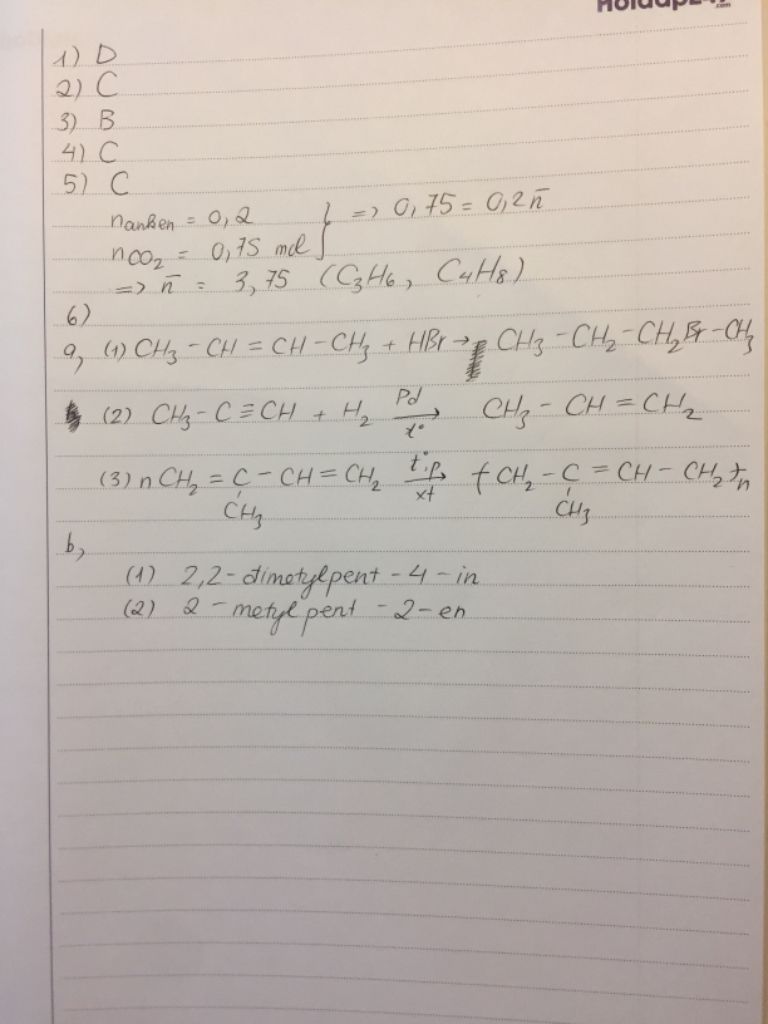 1) D
2) C
3) B
4) C
5) C
nanken = 0,2
nCO₂ = 0,75 mol } => 0,75 = 0,2n̄
=> n̄ = 3,75 (C₃H₆, C₄H₈)
6)
a, (1) CH₃ - CH = CH - CH₃ + HBr → CH₃ - CH₂ - CH₂Br - CH₃
(2) CH₃ - C ≡ CH + H₂ Pd → t° CH₃ - CH = CH₂
(3) nCH₂ = C - CH = CH₂ t°,p → xt ( CH₂ - C = CH - CH₂ )n
CH₃ CH₃
b,
(1) 2,2 - đimetylpent - 4 - in
(2) 2 - metylpent - 2 - en